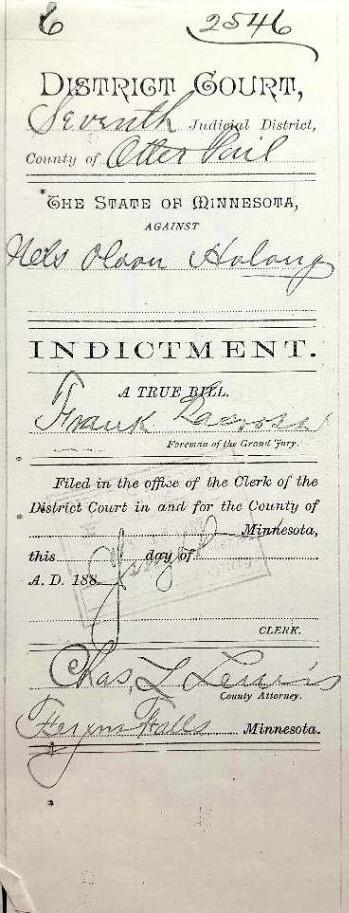 6 2546
DISTRICT COURT,
Seventh Judicial District,
County of Otter Tail
THE STATE OF MINNESOTA,
AGAINST
Nels Olson Holong
INDICTMENT.
A TRUE BILL.
Frank
Foreman of the Grand Jury.
Filed in the office of the Clerk of the
District Court in and for the County of
Minnesota,
this day of
A. D. 188
CLERK.
Chas, L Lewis
County Attorney.
Fergus Falls Minnesota.